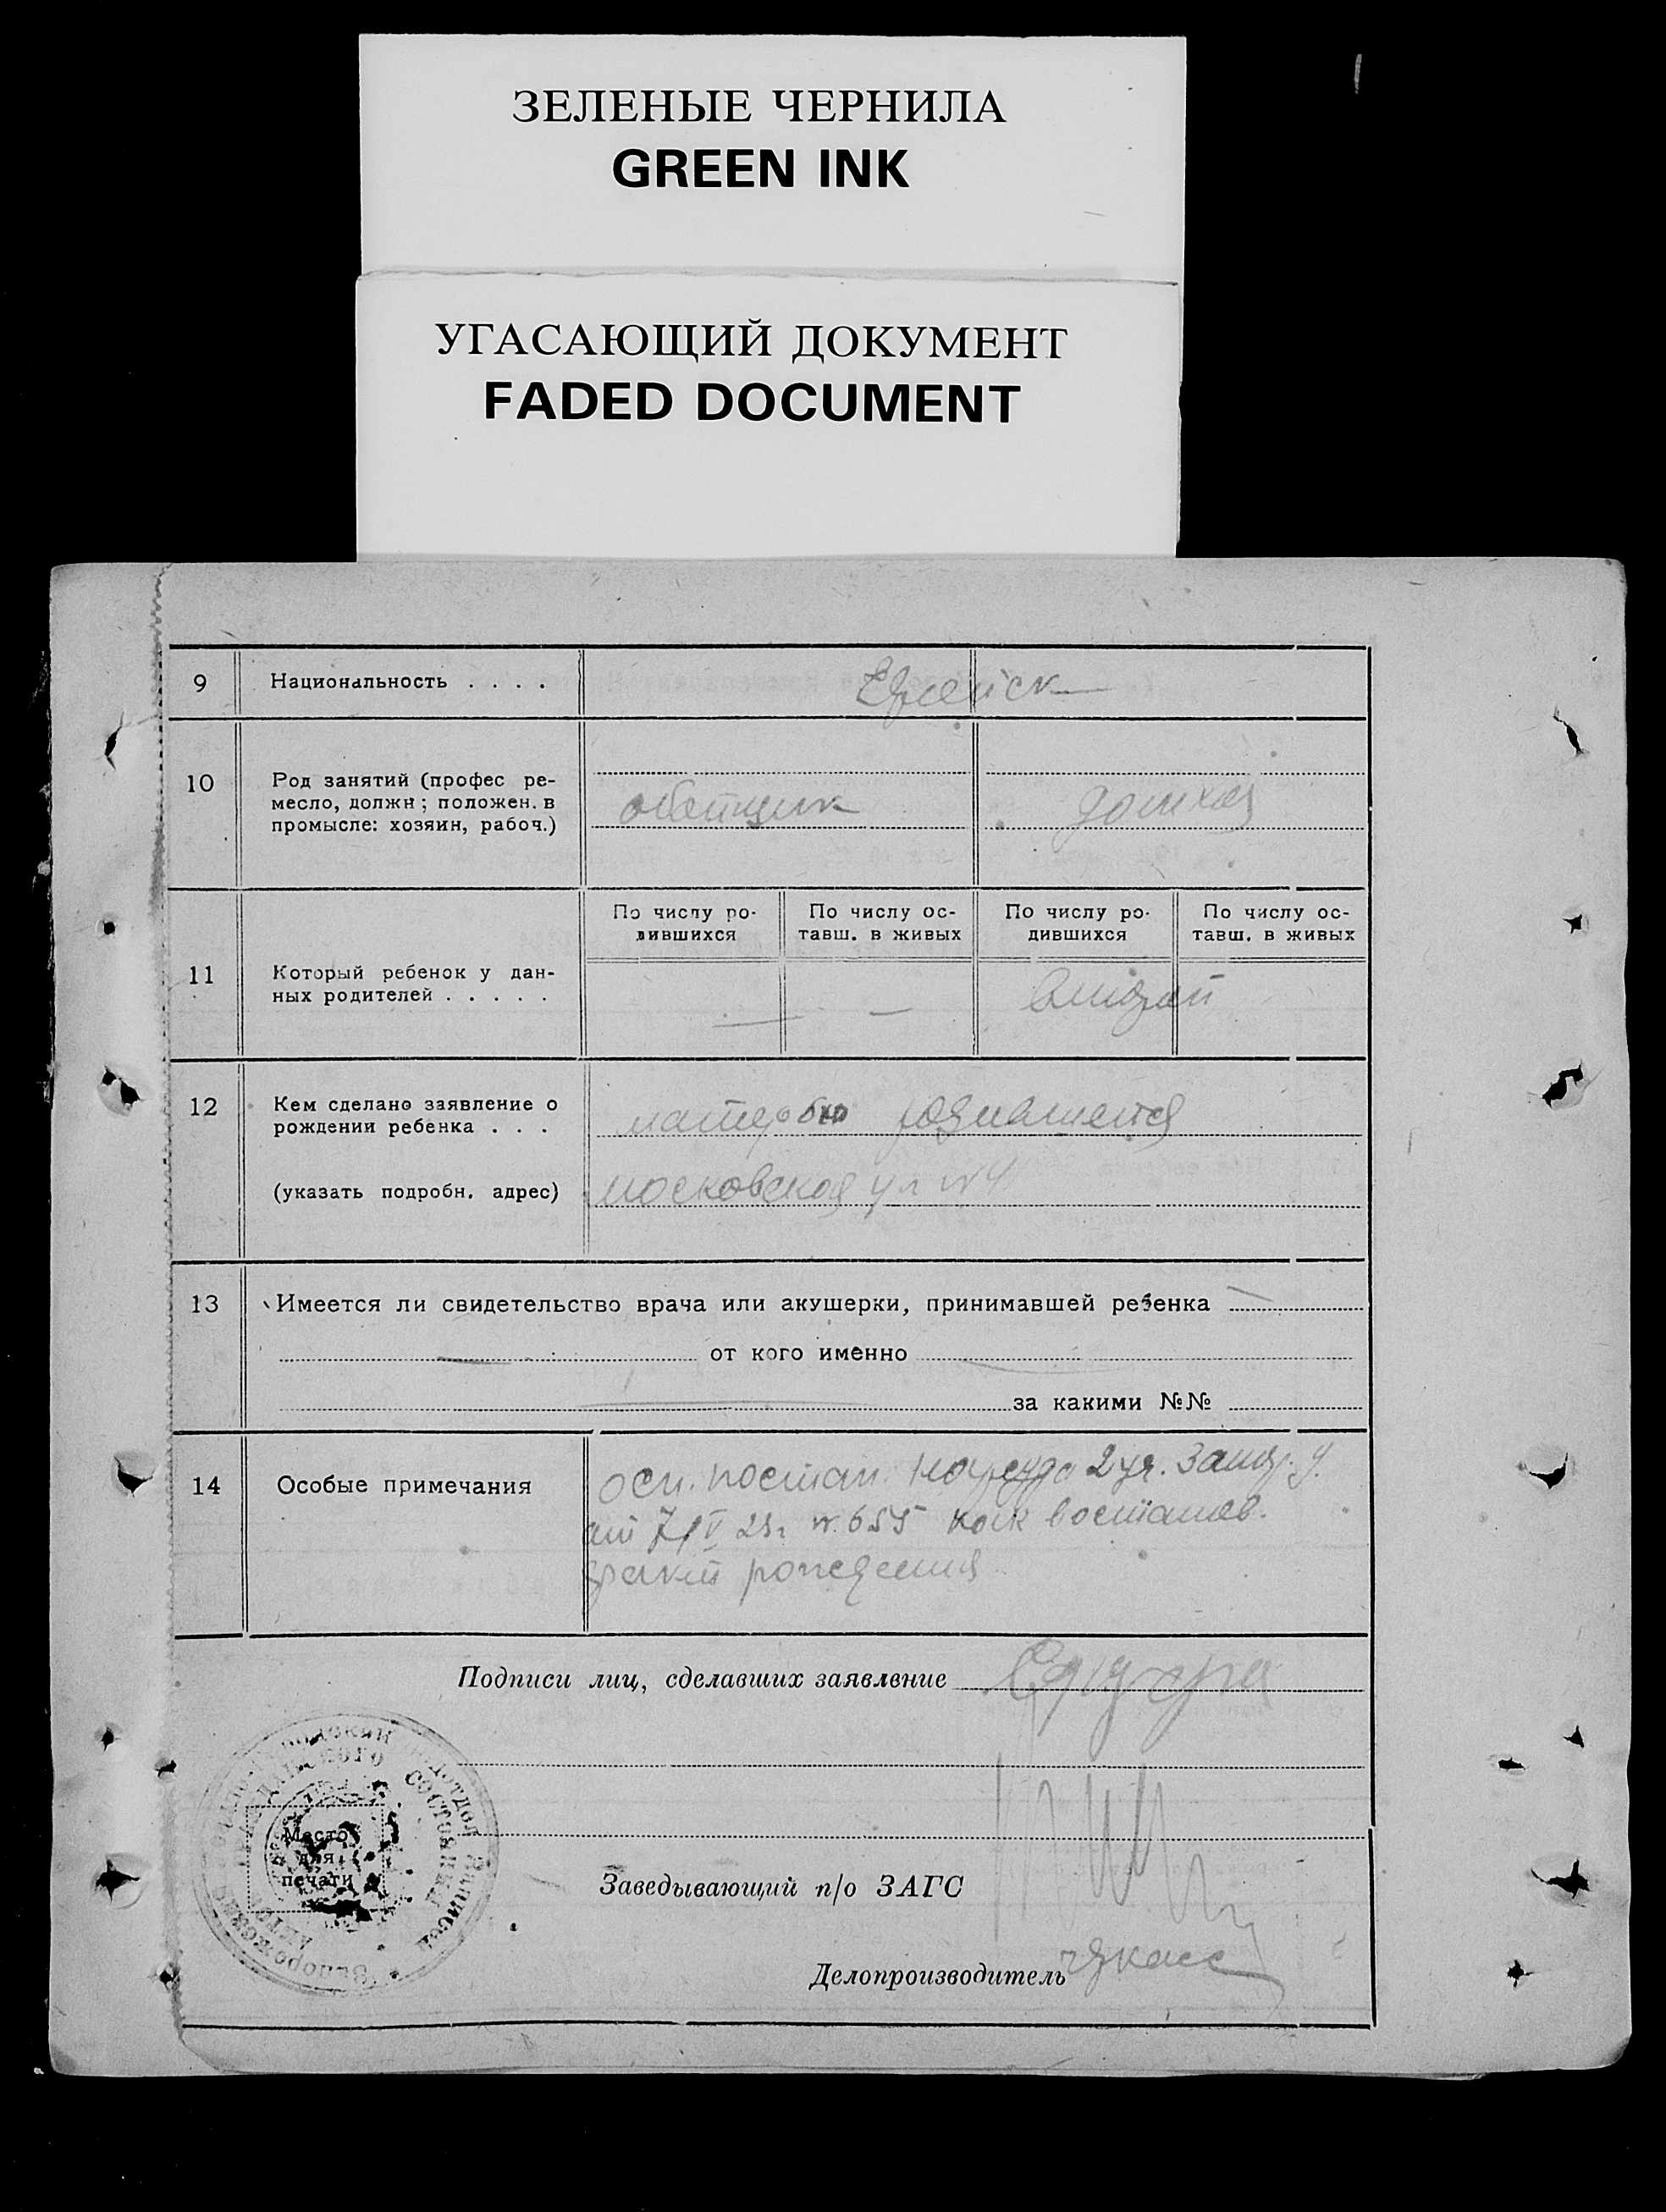 ЗЕЛЕНЫЕ ЧЕРНИЛА
GREEN INK
УГАСАЮЩИЙ ДОКУМЕНТ
FADED DOCUMENT
9 Национальность . . . . Еврейск
10 Род занятий (профес ре-
месло, должн; положен. в
промысле: хозяин, рабоч.)
домхоз
По числу ро-
дившихся
По числу ос-
тавш. в живых
По числу ро-
дившихся
По числу ос-
тавш. в живых
11 Который ребенок у дан-
ных родителей . . . . .
— — второй
12 Кем сделано заявление о
рождении ребенка . . .
матерью
(указать подробн. адрес) московская ул N4
13 Имеется ли свидетельство врача или акушерки, принимавшей ребенка —
от кого именно
за какими №№
14 Особые примечания
осн. постан. нарсуда 2 уч. Запор.
от 7/V 25г N. 655 восстанов.
факт рождения
Подписи лиц, сделавших заявление
Место
для
печати
Заведывающий п/о ЗАГС
Делопроизводитель